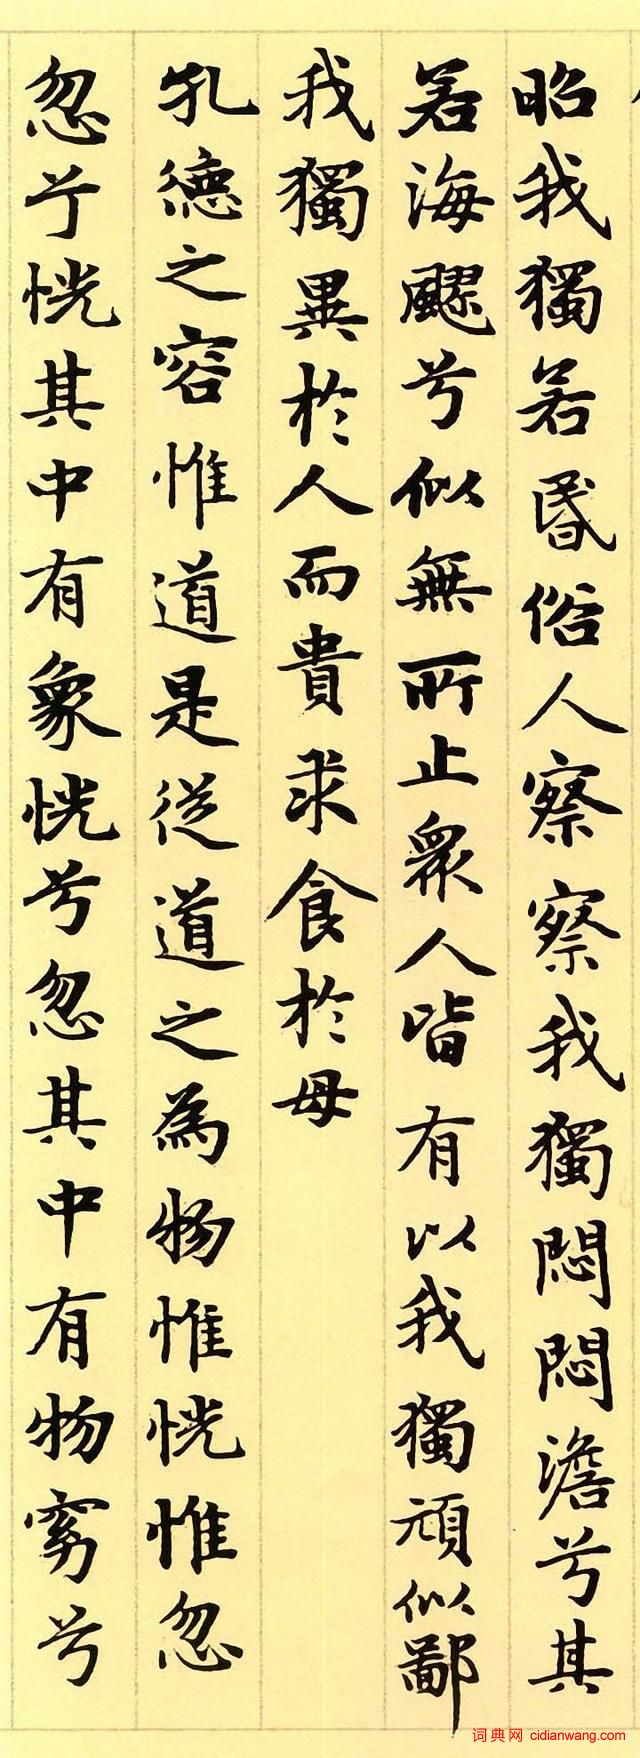 昭我獨若昏俗人察察我獨悶悶澹兮其
若海飂兮似無所止眾人皆有以我獨頑似鄙
我獨異於人而貴求食於母
孔德之容惟道是從道之為物惟恍惟忽
忽兮恍其中有象恍兮忽其中有物窈兮
词典网 cidianwang.com